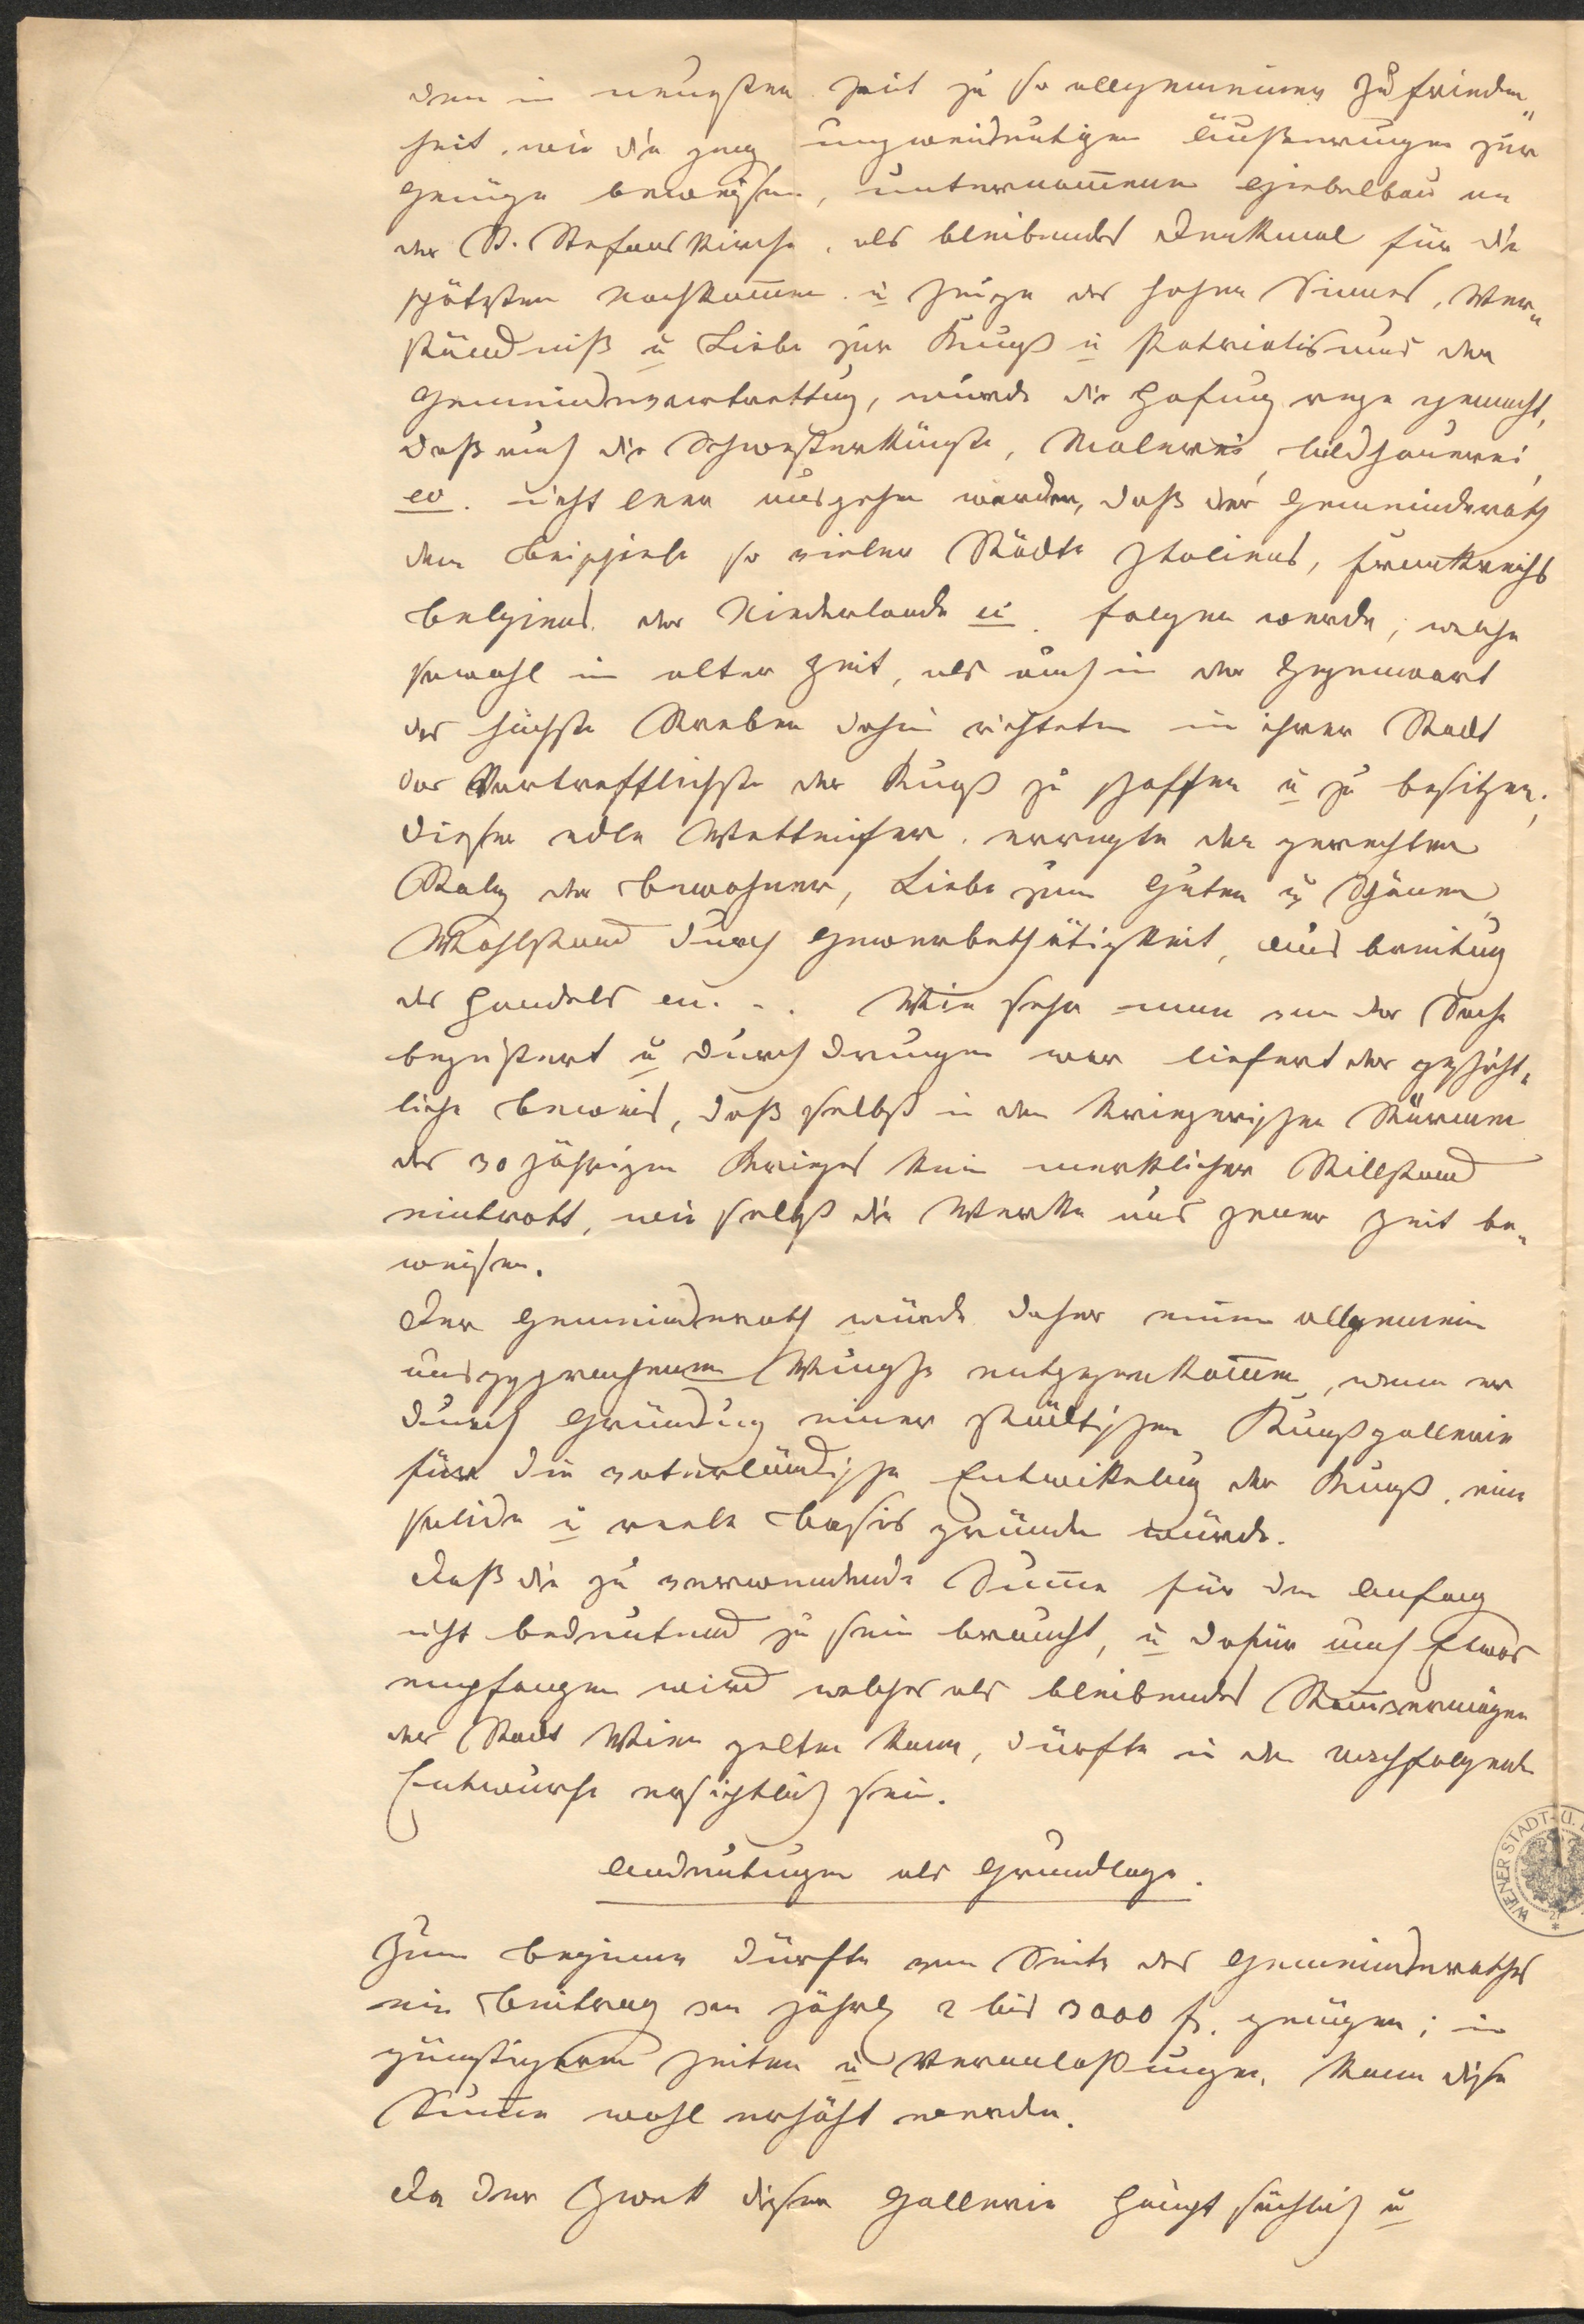 dem in neuester Zeit zu so allgemeiner Zufrieden„
heit, wie die ganz unzweideutigen Äußerungen zur
Genüge beweisen, unternommenen Giebelbau an
der St. Stefans Kirche, als bleibendes Denkmal für die
spätesten Nachkommen u Zeuge des hohen Sinnes, Ver„
ständniß u Liebe zur Kunst u Patriotismus der
Gemeindevertrettung, wurde die Hofung rege gemacht,
daß auch die Schwesterkünste, Malerei, bildhauerei
etc. nicht leer ausgehen werden, daß der Gemeinderath
dem Beispiele so vieler Städte Italiens, Frankreichs
Belgiens der Niederlande etc. folgen werde, welche
sowohl in alter Zeit, als auch in der Gegenwart
das höchste Streben dahin richteten in ihrer Stadt
das Vortrefflichste der Kunst zu schaffen u zu besitzen;
dieser edle Wetteifer erregte den gerechten
Stolz der Bewohner, Liebe zum Guten u Schönen,
Wohlstand durch Gewerbethätigkeit, Ausbreitung
des Handels etc. Wie sehr man von der Sache
begeistert u durchdrungen war liefert der geschicht„
liche Beweis, daß selbst in den kriegerischen Stürmen
des 30 jährigen Krieges kein merklicher Stillstand
eintratt, wie selbst die Werke aus jener Zeit be„
weisen.
Der Gemeinderath würde daher einem allgemein
ausgesprochenen Wunsche entgegenkommen, wenn er
durch Gründung einer städtischen Kunstgallerie
für die vaterländische Entwikelung der Kunst, eine
solide u reele Basis gründen würde.
Daß die zu verwendende Summe für den Anfang
nicht bedeutend zu sein braucht, u dafür auch Etwas
empfangen wird welches als bleibendes Stammvermögen
der Stadt Wien gelten kann, dürfte in dem nachfolgenden
Entwurfe ersichtlich sein.
Andeutungen als Grundlage.
Zum Beginne dürfte von Seite des Gemeinderathes
ein Beitrag von jährlich 2 bis 3000 fl. genügen; in
günstigeren Zeiten u Veranlaßungen, kann diese
Summe wohl erhöht werden.
Da der Zwek dieser Gallerie hauptsächlich u
WIENER STADT- U.